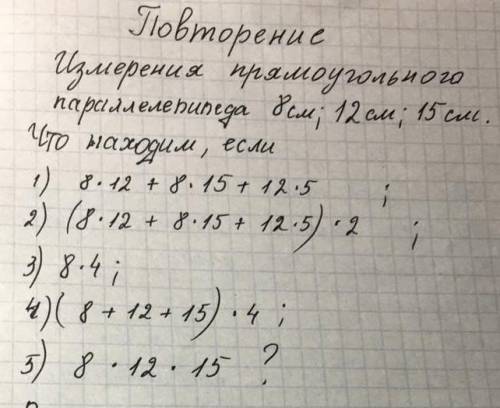 Повторение
Измерения прямоугольного
параллелепипеда 8см; 12см; 15см.
Что находим, если
1) 8·12 + 8·15 + 12·5 ;
2) (8·12 + 8·15 + 12·5)·2 ;
3) 8·4;
4) (8 + 12 + 15)·4 ;
5) 8 · 12 · 15 ?